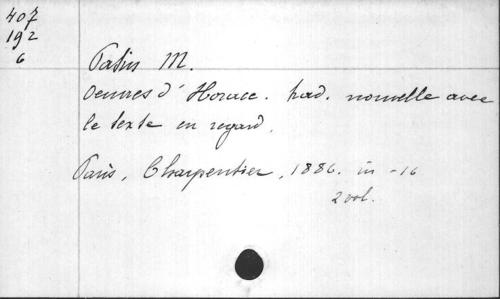 407
192
6
Patin M.
Oeuvres d' Horace. trad. nouvelle avec
le texte en regard.
Paris, Charpentier, 1886. in -16
2 vol.